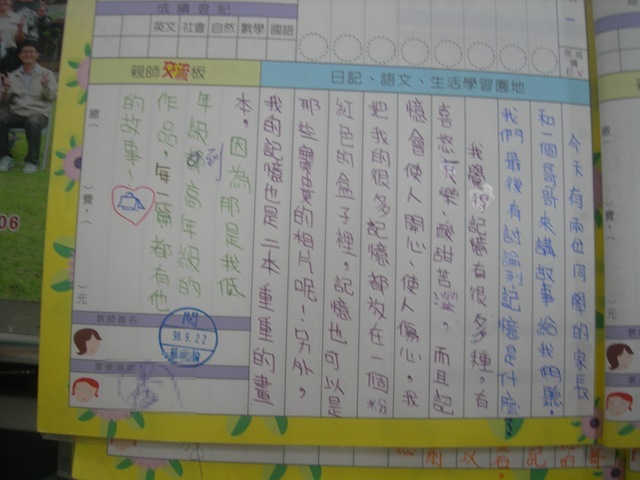 成績登記
英文 社會 自然 數學 國語
日記、語文、生活學習園地
今天有兩位同學的家長
和一個哥哥來講故事給我們聽。
我們最後有討論到記憶是什麼?
我覺得記憶有很多種,有
喜怒哀樂、酸甜苦澀。而且記
憶會使人開心、使人傷心。我
把我的很多記憶都放在一個粉
紅色的盒子裡,記憶也可以是
那些舊舊的相片呢!另外,
我的記憶也是一本重重的畫
親師交流板
本,因為那是我低
年級到高年級的
作品,每一篇都有他
的故事、
繳( )費,( )元
教師簽名
閱
98.9.22
06